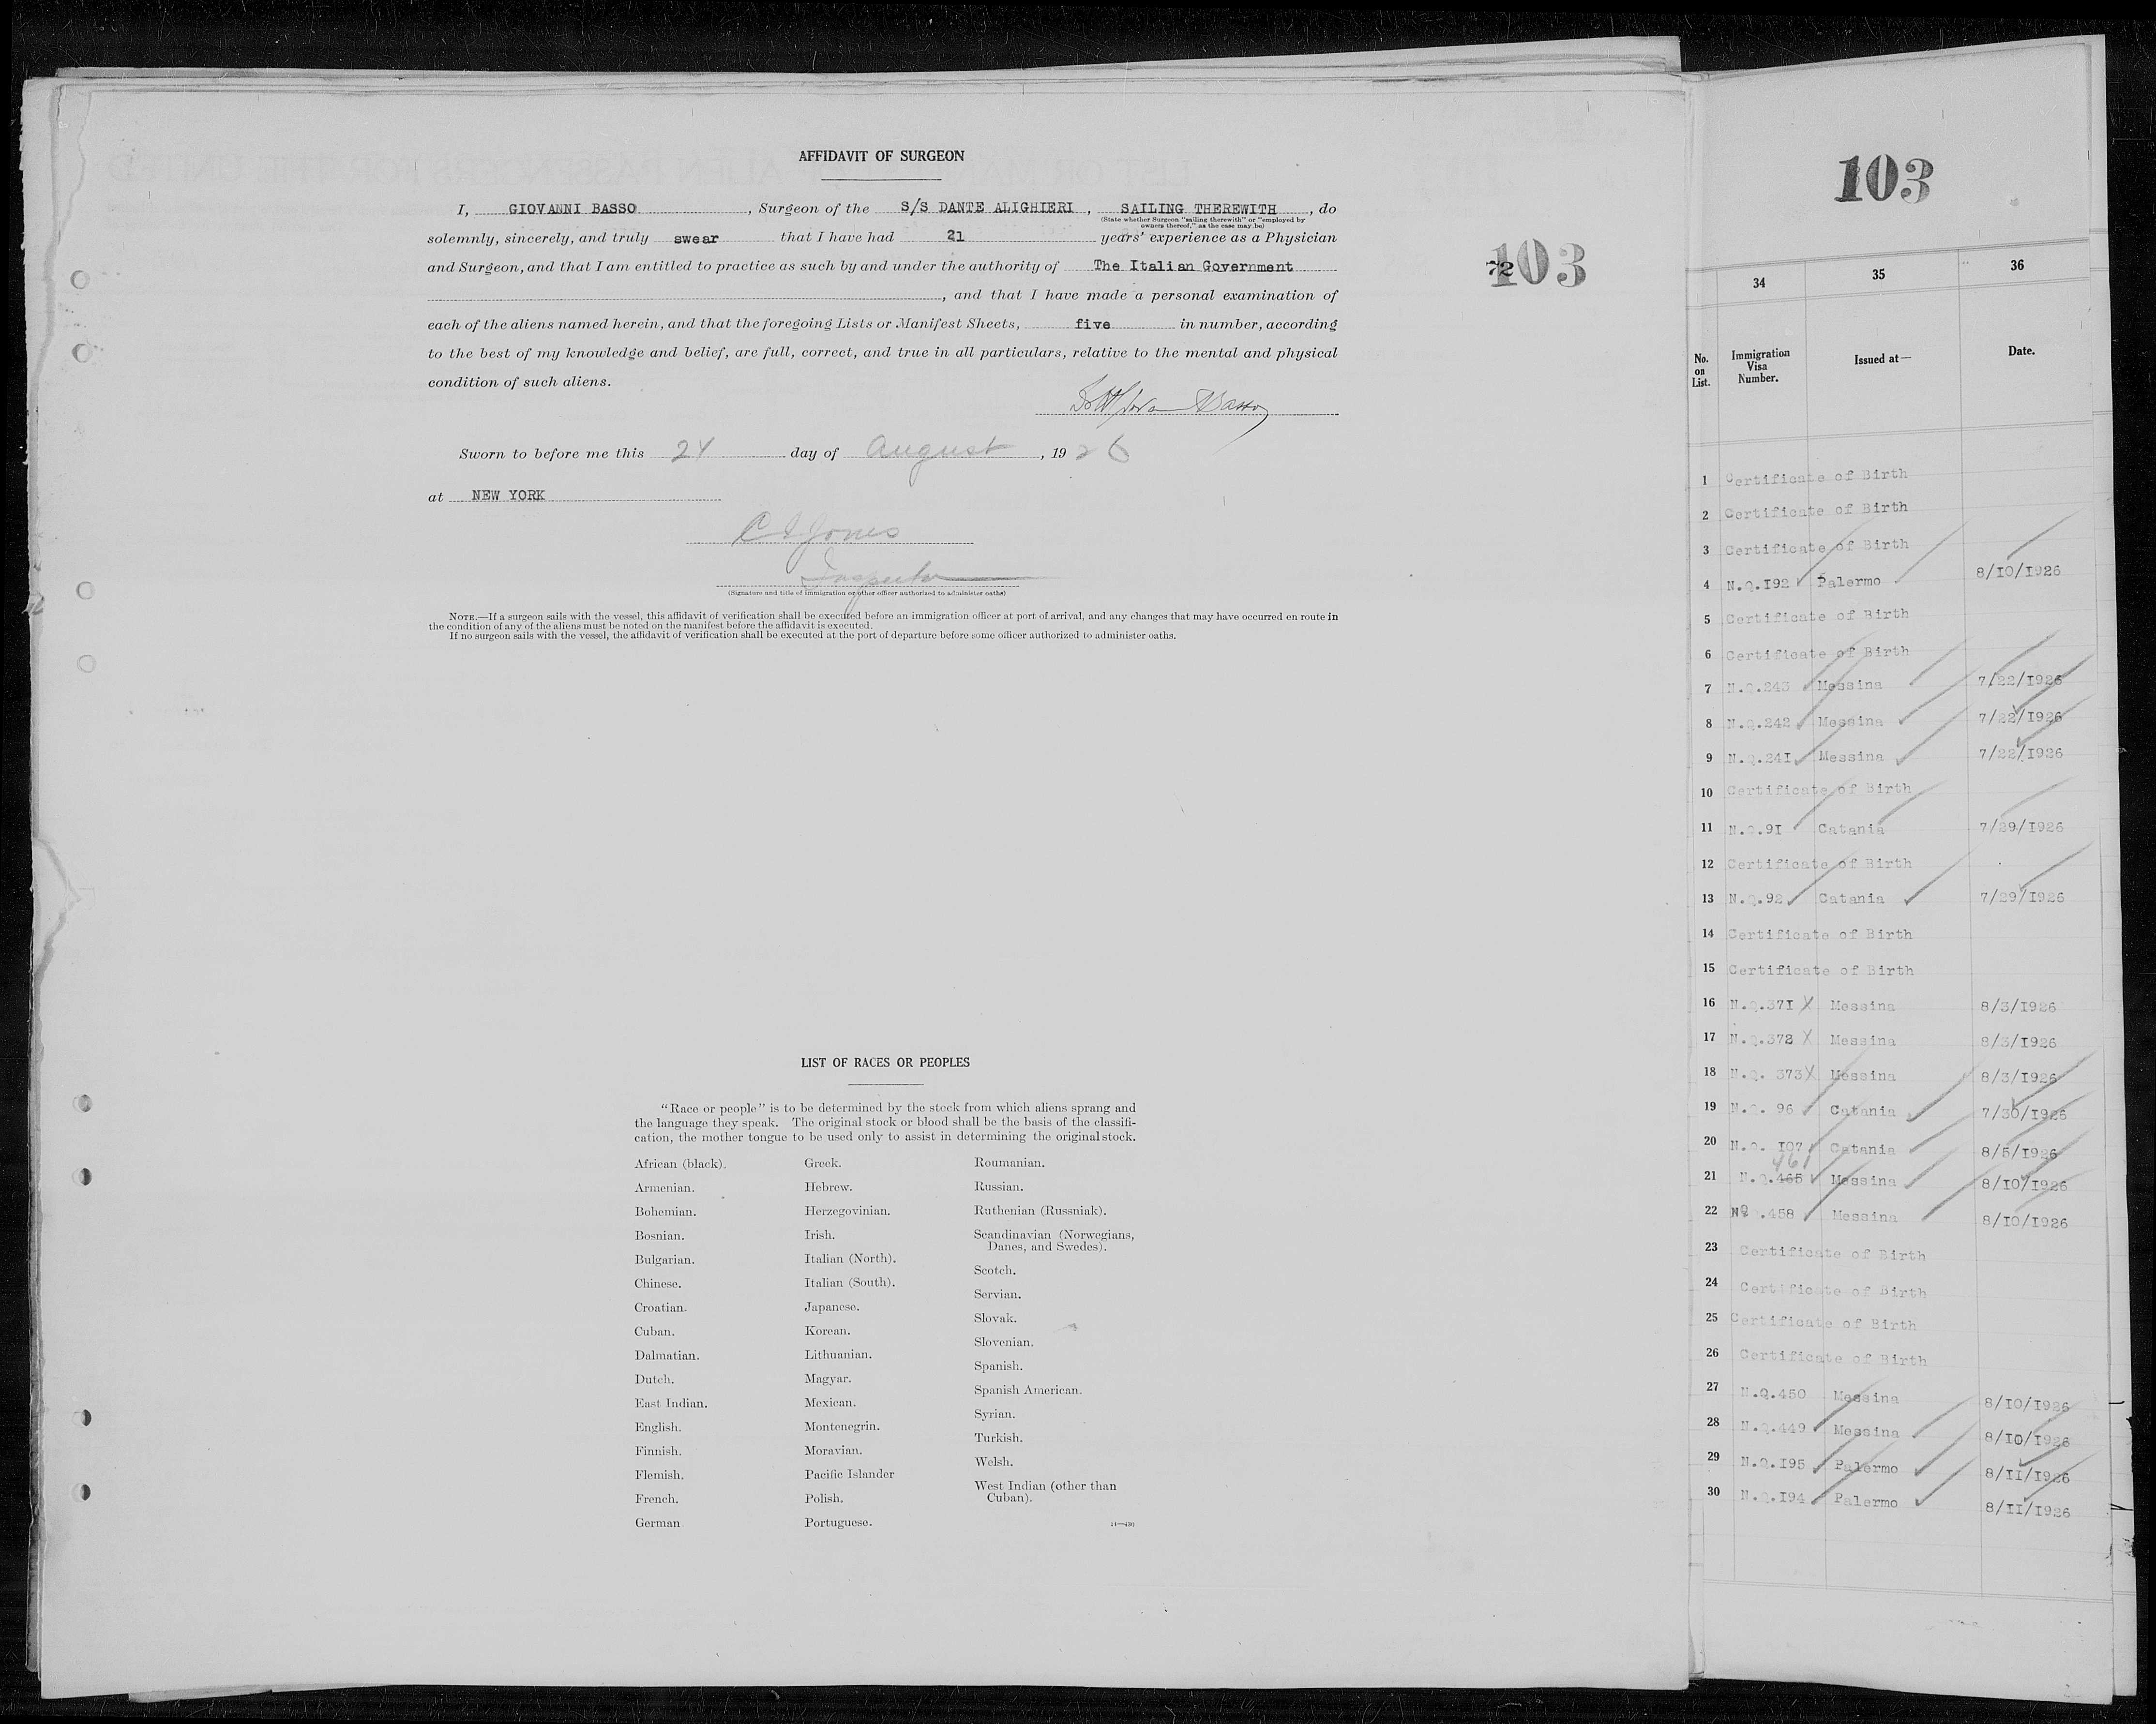 AFFIDAVIT OF SURGEON
I, GIOVANNI BASSO, Surgeon of the S/S DANTE ALIGHIERI, SAILING THEREWITH, do
(State whether Surgeon "sailing therewith" or "employed by
owners thereof," as the case may be)
solemnly, sincerely, and truly swear that I have had 21 years' experience as a Physician
and Surgeon, and that I am entitled to practice as such by and under the authority of The Italian Government
, and that I have made a personal examination of
each of the aliens named herein, and that the foregoing Lists or Manifest Sheets, five in number, according
to the best of my knowledge and belief, are full, correct, and true in all particulars, relative to the mental and physical
condition of such aliens.
Basso
Sworn to before me this 24 day of August, 1926
at NEW YORK
C E Jones
Inspector
(Signature and title of immigration or other officer authorized to administer oaths)
NOTE.—If a surgeon sails with the vessel, this affidavit of verification shall be executed before an immigration officer at port of arrival, and any changes that may have occurred en route in
the condition of any of the aliens must be noted on the manifest before the affidavit is executed.
If no surgeon sails with the vessel, the affidavit of verification shall be executed at the port of departure before some officer authorized to administer oaths.
72
103
LIST OF RACES OR PEOPLES
"Race or people" is to be determined by the stock from which aliens sprang and
the language they speak. The original stock or blood shall be the basis of the classifi-
cation, the mother tongue to be used only to assist in determining the original stock.
African (black).
Armenian.
Bohemian.
Bosnian.
Bulgarian.
Chinese.
Croatian.
Cuban.
Dalmatian.
Dutch.
East Indian.
English.
Finnish.
Flemish.
French.
German
Greek.
Hebrew.
Herzegovinian.
Irish.
Italian (North).
Italian (South).
Japanese.
Korean.
Lithuanian.
Magyar.
Mexican.
Montenegrin.
Moravian.
Pacific Islander
Polish.
Portuguese.
Roumanian.
Russian.
Ruthenian (Russniak).
Scandinavian (Norwegians,
Danes, and Swedes).
Scotch.
Servian.
Slovak.
Slovenian.
Spanish.
Spanish American.
Syrian.
Turkish.
Welsh.
West Indian (other than
Cuban).
14—430
103
34 35 36
No. on List. Immigration Visa Number. Issued at— Date.
1 Certificate of Birth
2 Certificate of Birth
3 Certificate of Birth
4 N.Q.192 Palermo 8/10/1926
5 Certificate of Birth
6 Certificate of Birth
7 N.Q.243 Messina 7/22/1926
8 N.Q.242 Messina 7/22/1926
9 N.Q.241 Messina 7/22/1926
10 Certificate of Birth
11 N.Q.91 Catania 7/29/1926
12 Certificate of Birth
13 N.Q.92 Catania 7/29/1926
14 Certificate of Birth
15 Certificate of Birth
16 N.Q.371 X Messina 8/3/1926
17 N.Q.372 X Messina 8/3/1926
18 N.Q. 373 X Messina 8/3/1926
19 N.Q. 96 Catania 7/30/1926
20 N.Q. 107 Catania 8/5/1926
461
21 N.Q.465 Messina 8/10/1926
22 NQ.458 Messina 8/10/1926
23 Certificate of Birth
24 Certificate of Birth
25 Certificate of Birth
26 Certificate of Birth
27 N.Q.450 Messina 8/10/1926
28 N.Q.449 Messina 8/10/1926
29 N.Q.195 Palermo 8/11/1926
30 N.Q.194 Palermo 8/11/1926